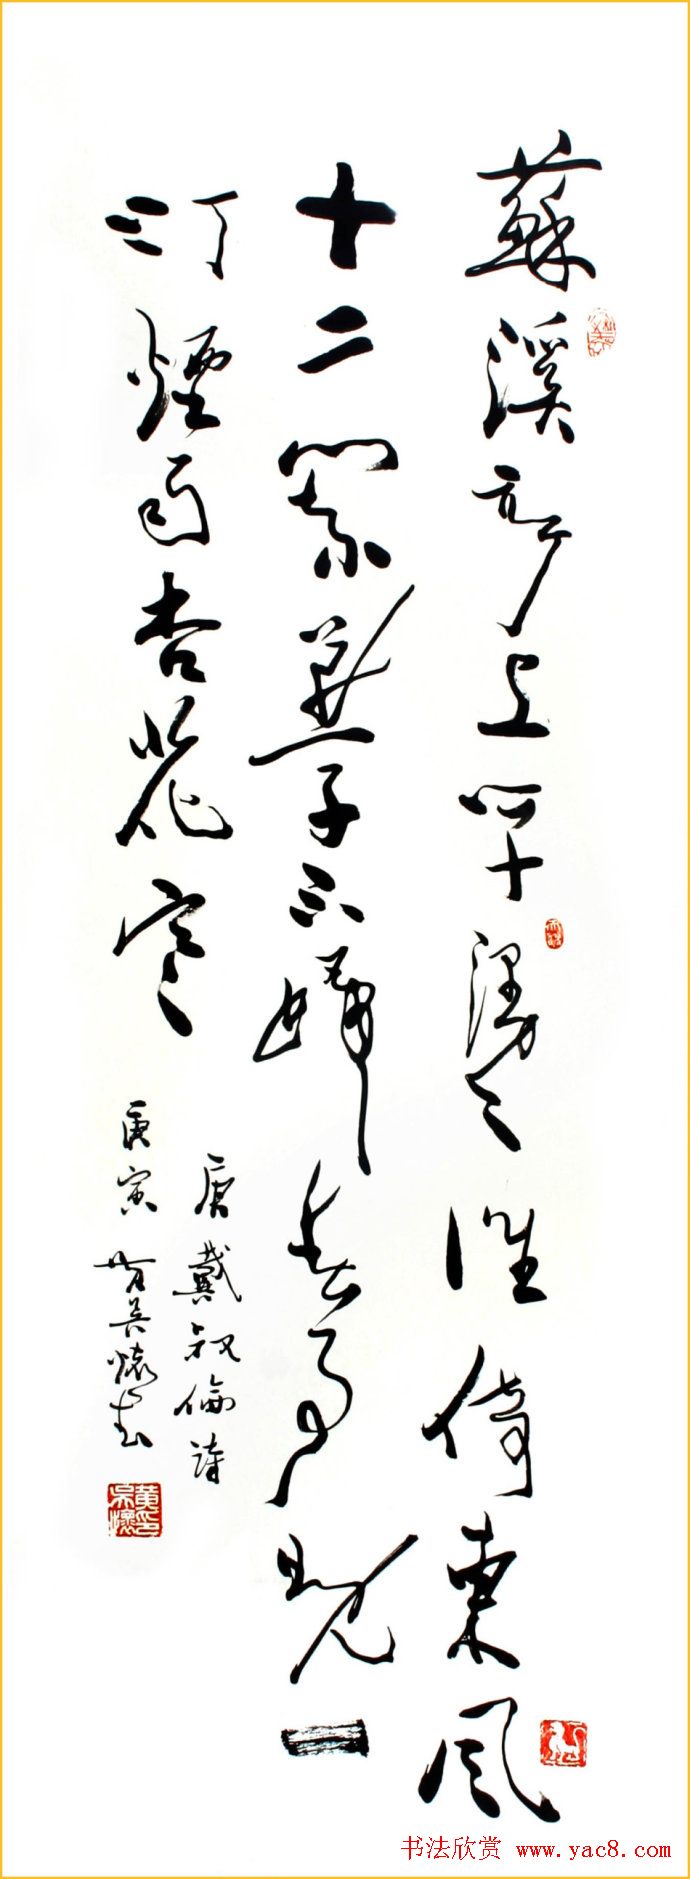 蘇溪亭上草漫々誰倚東風
十二闌燕子不歸春事晚一
汀煙雨杏花寒
唐戴叔倫詩
庚寅 黃吳懷書
黃吳懷印
书法欣赏 www.yac8.com